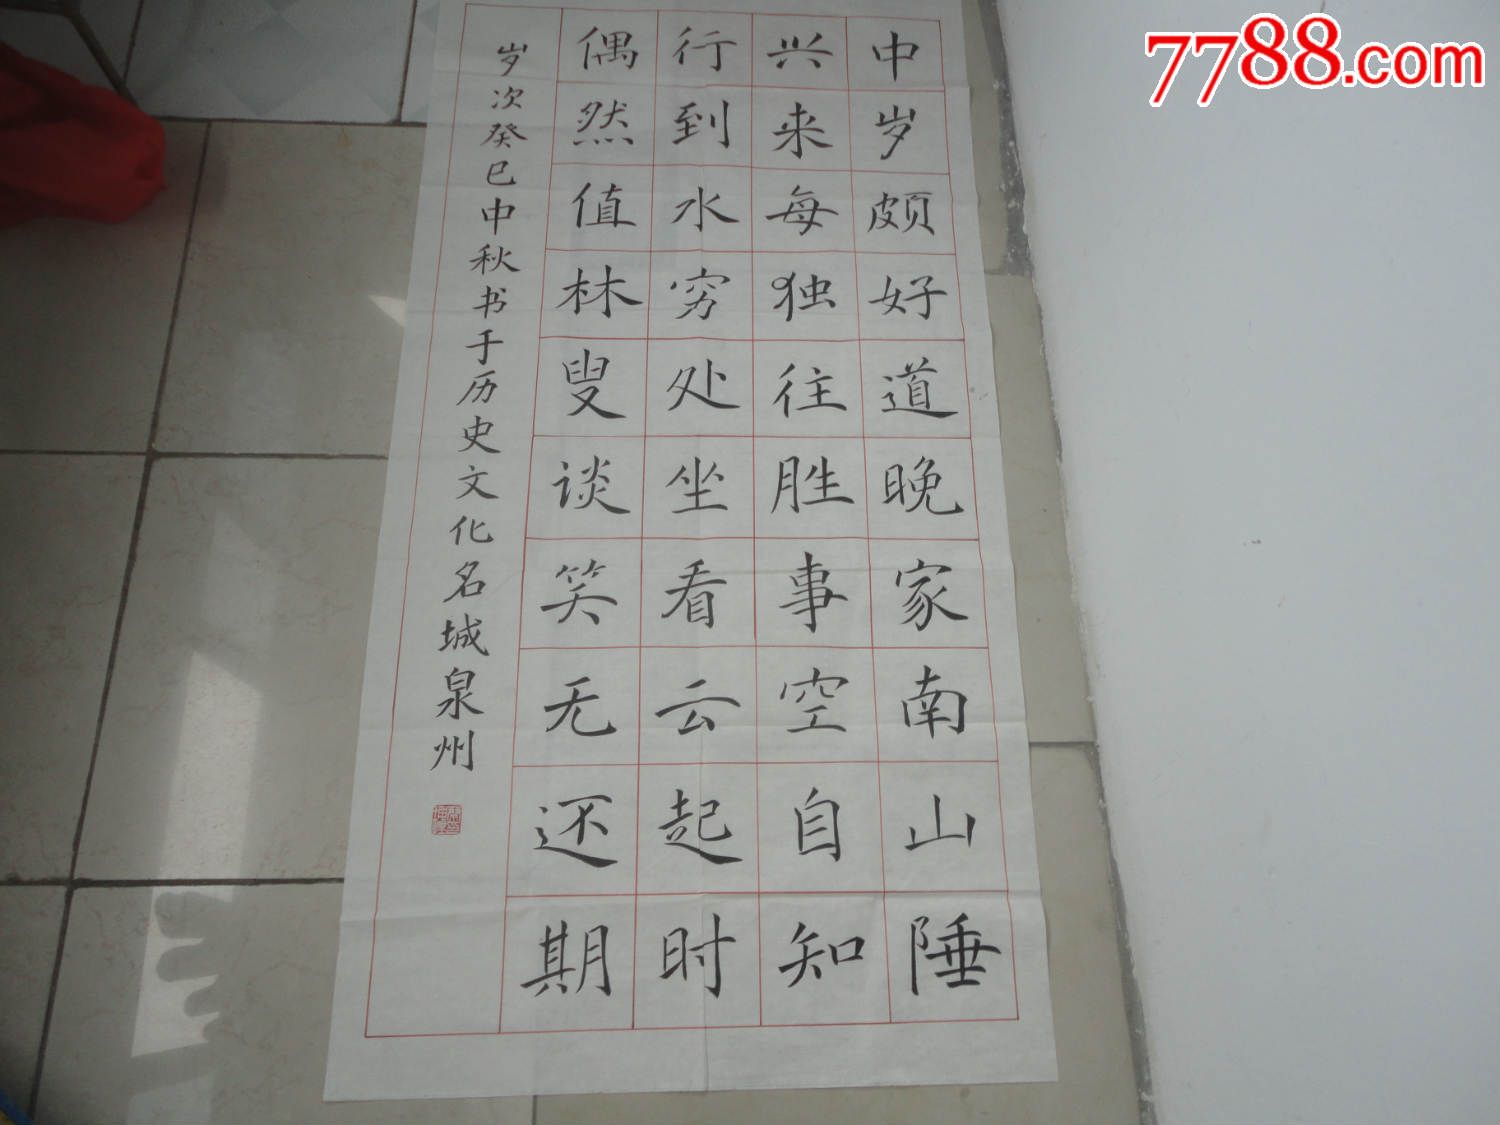 中岁颇好道晚家南山陲
兴来每独往胜事空自知
行到水穷处坐看云起时
偶然值林叟谈笑无还期
岁次癸巳中秋书于历史文化名城泉州
7788.com